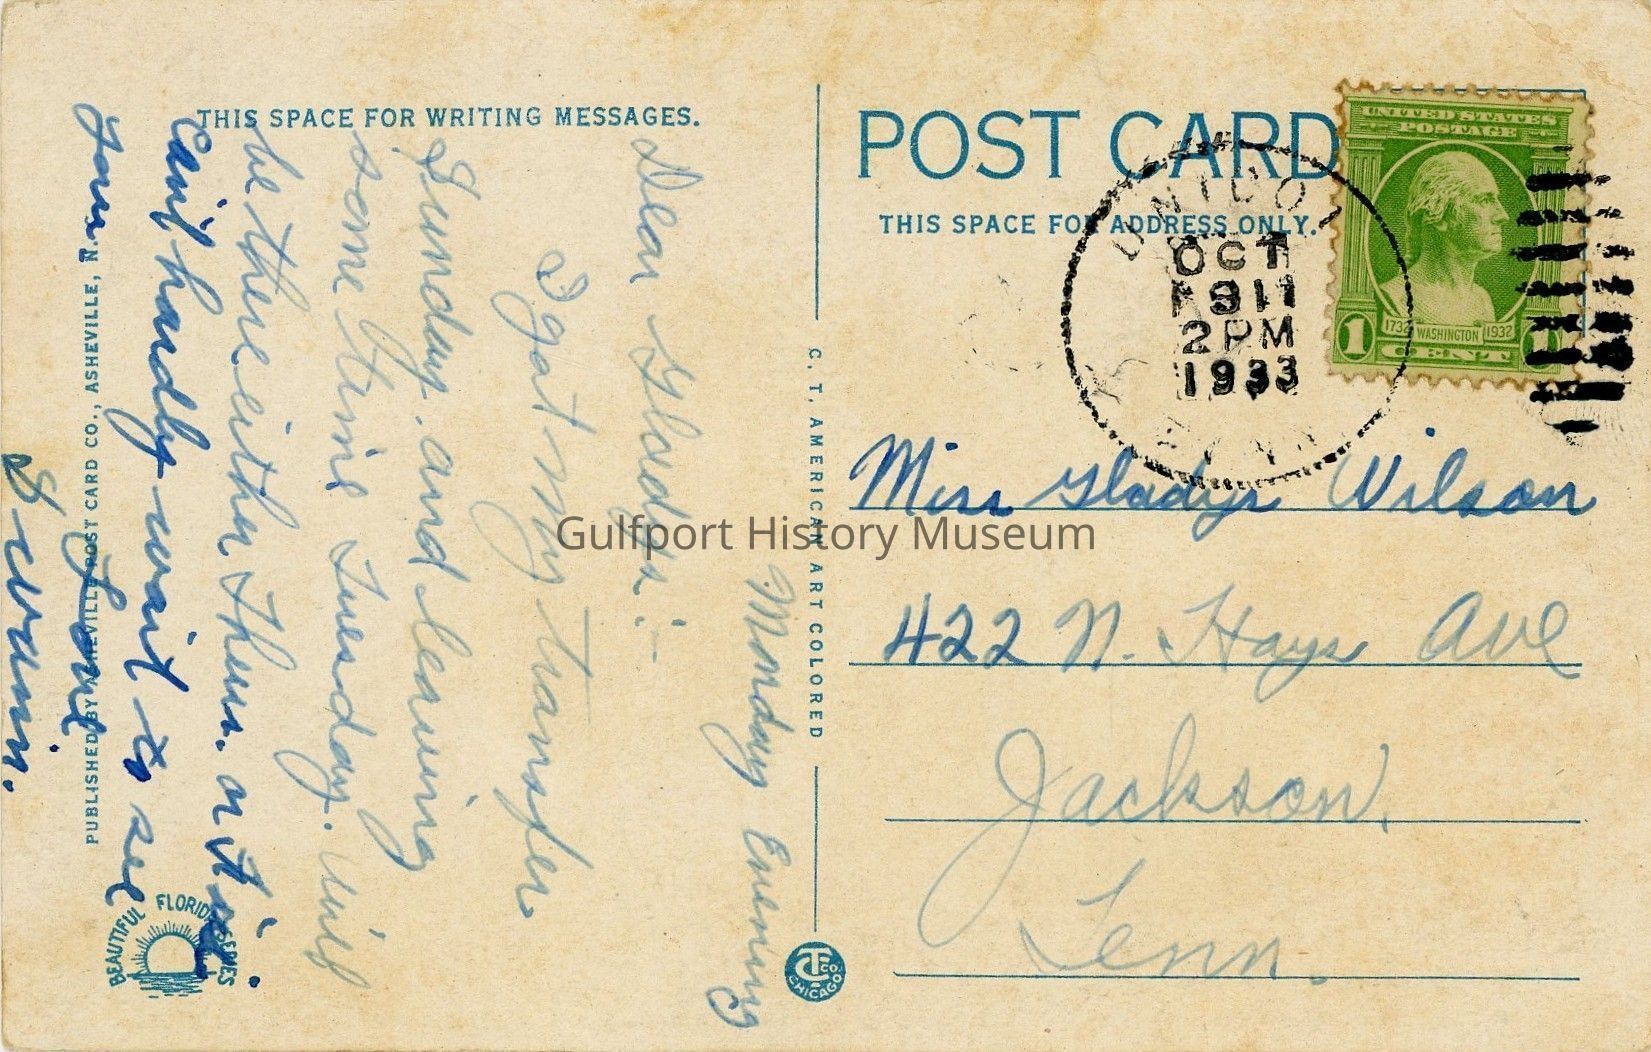 THIS SPACE FOR WRITING MESSAGES.
Monday Evening
Dear Gladys:-
I got my transfer
Sunday. and leaving
some time Tuesday. Will
be there either Thurs. or Fri.
Can't hardly wait to see
you.
Love
PUBLISHED BY ASHEVILLE POST CARD CO., ASHEVILLE, N.
BEAUTIFUL FLORIDA SERIES
C. T. AMERICAN ART COLORED
CT CO
CHICAGO
POST CARD
THIS SPACE FOR ADDRESS ONLY.
UNICOI
OCT
2 PM
1933
UNITED STATES
POSTAGE
1732 WASHINGTON 1932
1 CENT 1
Miss Gladys Wilson
422 N. Hays Ave
Jackson,
Tenn.
Gulfport History Museum